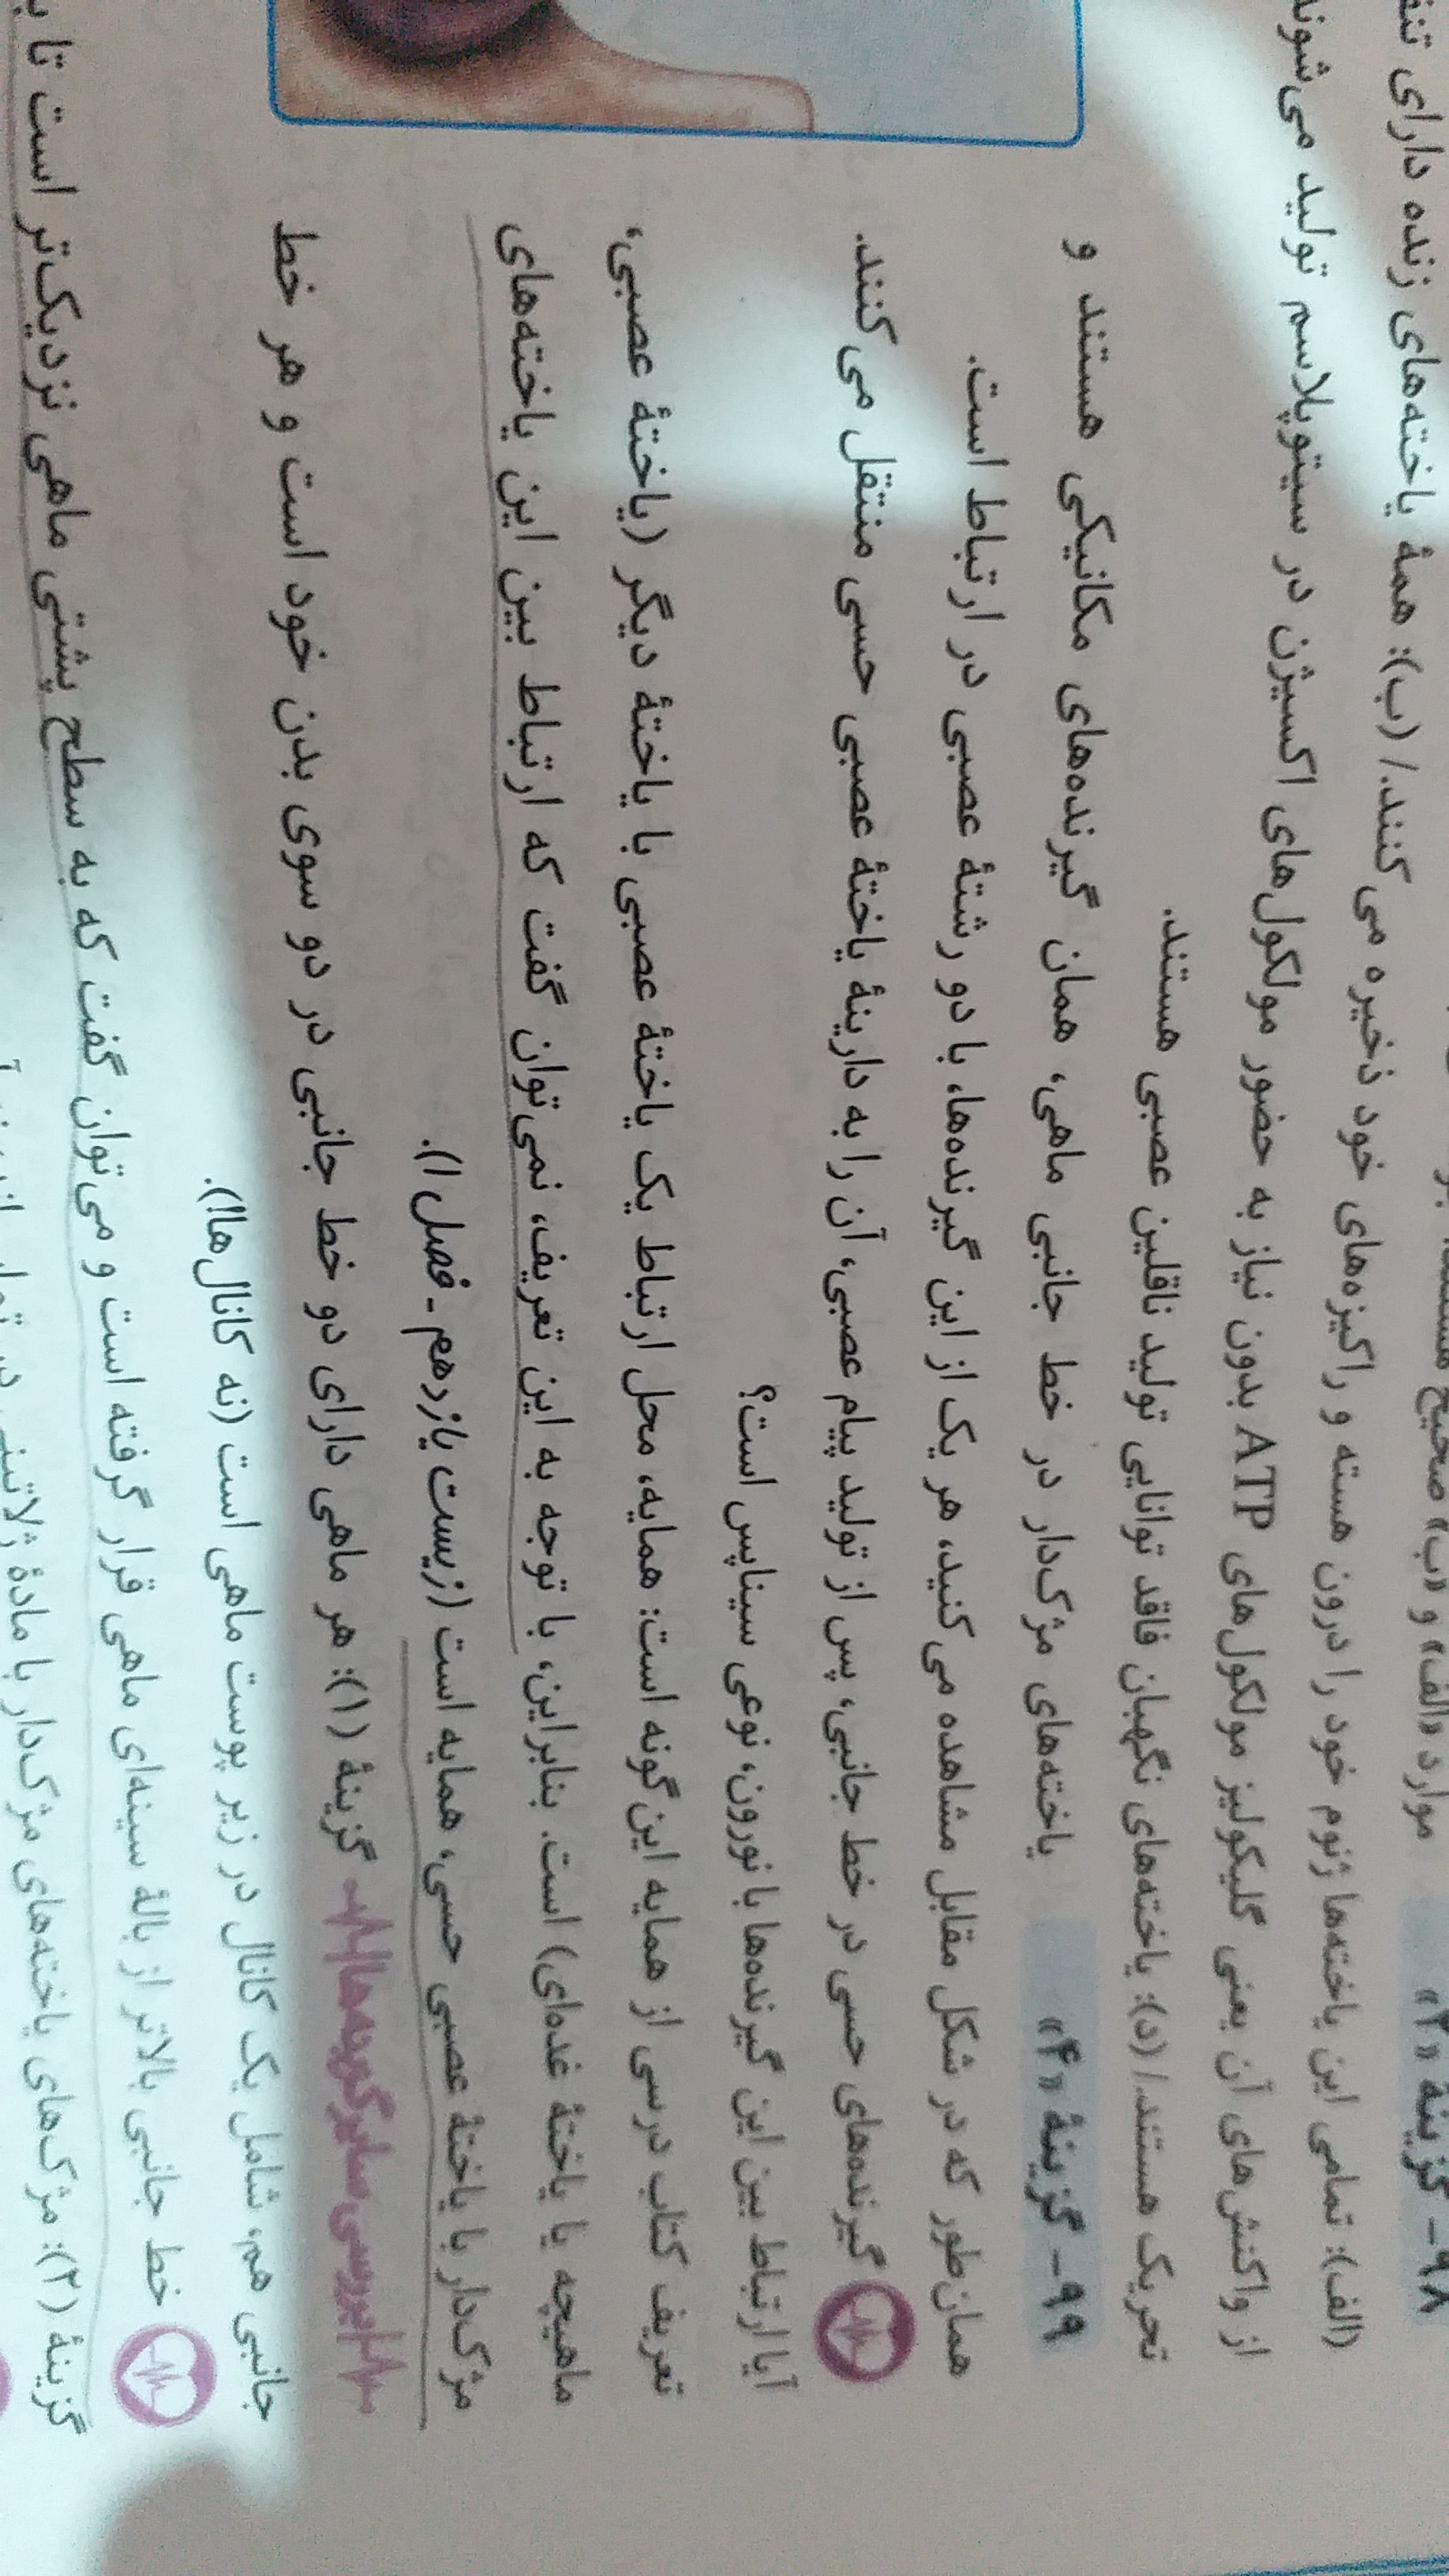 ۹۸- گزینهٔ «۲» موارد «الف» و «ب» صحیح
(الف): تمامی این یاخته‌ها ژنوم خود را درون هسته و راکیزه‌های خود ذخیره می‌کنند./ (ب): همهٔ یاخته‌های زنده دارای
از واکنش‌های آن یعنی گلیکولیز مولکول‌های ATP بدون نیاز به حضور مولکول‌های اکسیژن در سیتوپلاسم تولید می‌شوند
تحریک هستند./ (د): یاخته‌های نگهبان فاقد توانایی تولید ناقلین عصبی هستند.
۹۹- گزینهٔ «۴» یاخته‌های مژک‌دار در خط جانبی ماهی، همان گیرنده‌های مکانیکی هستند و
همان‌طور که در شکل مقابل مشاهده می‌کنید، هر یک از این گیرنده‌ها، با دو رشتهٔ عصبی در ارتباط است.
گیرنده‌های حسی در خط جانبی، پس از تولید پیام عصبی، آن را به دارینهٔ یاختهٔ عصبی حسی منتقل می‌کنند.
آیا ارتباط بین این گیرنده‌ها با نورون، نوعی سیناپس است؟
تعریف کتاب درسی از همایه این‌گونه است: همایه، محل ارتباط یک یاختهٔ عصبی با یاختهٔ دیگر (یاختهٔ عصبی،
ماهیچه یا یاختهٔ غده‌ای) است. بنابراین، با توجه به این تعریف، نمی‌توان گفت که ارتباط بین این یاخته‌های
مژک‌دار با یاختهٔ عصبی حسی، همایه است (زیست یازدهم - فصل ۱).
بررسی سایر گزینه‌ها: گزینهٔ (۱): هر ماهی دارای دو خط جانبی در دو سوی بدن خود است و هر خط
جانبی هم، شامل یک کانال در زیر پوست ماهی است (نه کانال‌ها!).
خط جانبی بالاتر از بالهٔ سینه‌ای ماهی قرار گرفته است و می‌توان گفت که به سطح پشتی ماهی نزدیک‌تر است تا
گزینهٔ (۲): مژک‌های یاخته‌های مژک‌دار با مادهٔ ژلاتینی در